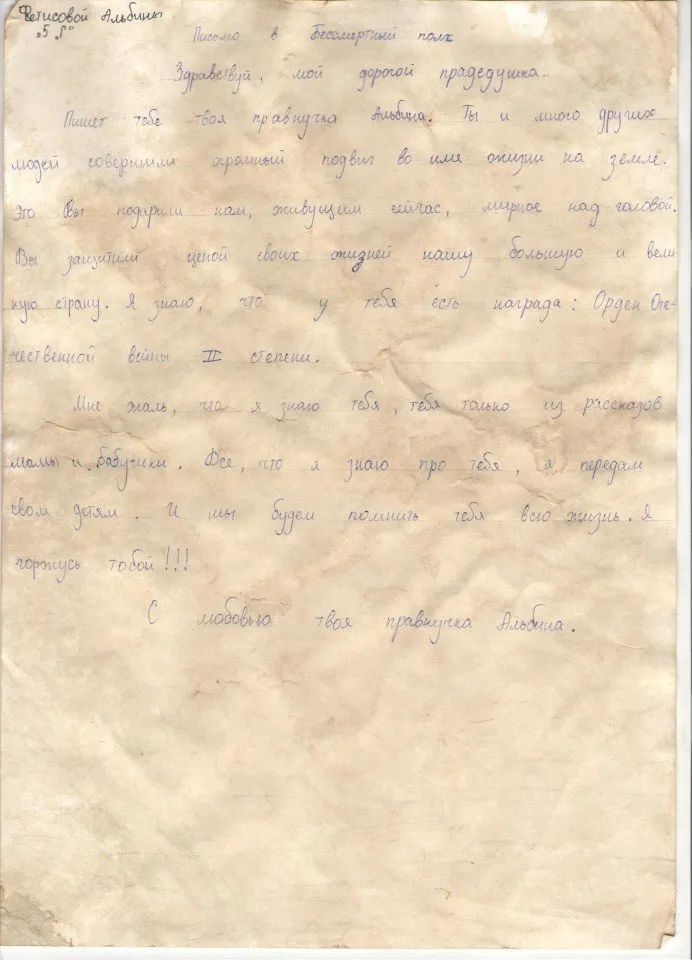 Фетисовой Альбины
"5 „Г"
Письмо в Бессмертный полк
Здравствуй, мой дорогой прадедушка.
Пишет тебе твоя правнучка Альбина. Ты и много других
людей совершили огромный подвиг во имя жизни на земле.
Это Вы подарили нам, живущим сейчас, мирное над головой.
Вы защитили ценой своих жизней нашу большую и вели-
кую страну. Я знаю, что у тебя есть награда: Орден Оте-
чественной войны II степени.
Мне жаль, что я знаю тебя, тебя только из рассказов
мамы и бабучики. Все, что я знаю про тебя, я передам
свом детям. И мы будем помнить тебя всю жизнь. Я
горжусь тобой!!!
С любовью твоя правнучка Альбина.